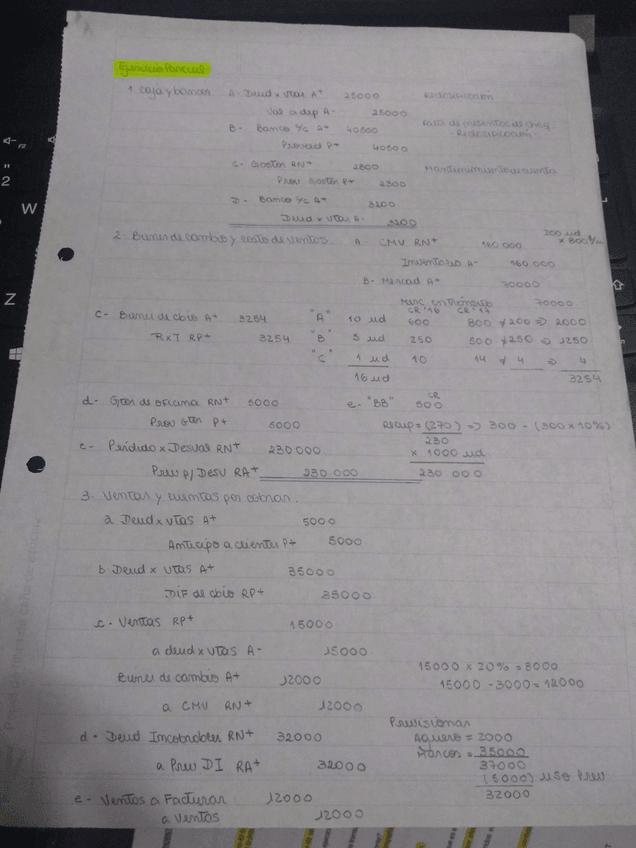 Ejercicio Parcial
1. Caja y bancos. A- Deud x vtas A+ 25000 Reclasificación
Val a dep A- 25000
B- Banco c/c A+ 40600 Falta de presentac de cheq
Proveed P+ 40600 -Reclasificación-
C- Gastos RN+ 2300 Mantenimiento de cuenta
Prov Gastos P+ 2300
D- Banco c/c A+ 3200
Deud x vtas A- 3200
2. Bienes de cambio y costo de ventas. A. CMV RN+ 160.000 200 ud x 800 $/u
Inventario A- 160.000
B- Mercad A+ 70000
Merc en tránsito 70000
CR '16 CR '17
C- Bienes de cbio A+ 3254 "A" 10 ud 600 800 ≠ 200 ⇒ 2000
RxT RP+ 3254 "B" 5 ud 250 500 ≠ 250 ⇒ 1250
"C" 1 ud 10 14 ≠ 4 ⇒ 4
16 ud 3254
d- Gtos de oficina RN+ 5000 e- "BB" CR 500
Prov Gtos P+ 5000 Recup = (270) ⇒ 300 - (300 x 10%)
e- Pérdida x Desval RN+ 230.000 230 x 1000 ud
Prev p/ Desv RA+ 230.000 230 000
3. Ventas y cuentas por cobrar.
a Deud x vtas A+ 5000
Anticipo a clientes P+ 5000
b Deud x vtas A+ 35000
Dif de cbio RP+ 35000
c- Ventas RP+ 15000
a deud x vtas A- 15000 15000 x 20% = 3000
Bienes de cambio A+ 12000 15000 - 3000 = 12000
a CMV RN+ 12000
Previsionar
d- Deud Incobrables RN+ 32000 Aguero = 2000
a Prev DI RA+ 32000 = 35000
37000
(5000) uso Prev
32000
e- Ventas a Facturar 12000
a Ventas 12000
W
Z
2